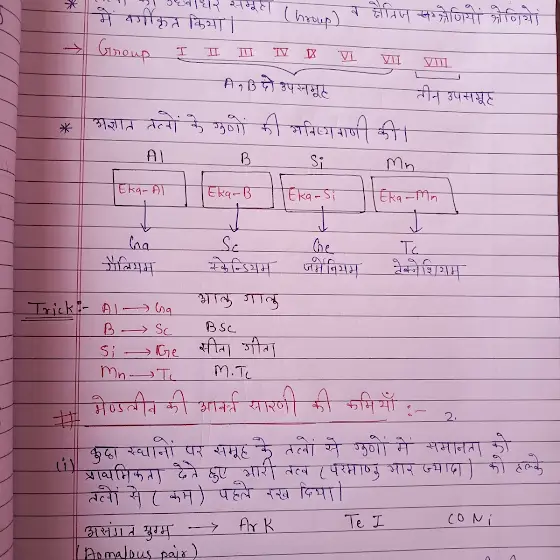 * तत्वों को उर्ध्वाधर समूहों (Group) व क्षैतिज श्रेणियों
में वर्गीकृत किया।
→ Group I II III IV V VI VII VIII
A, B दो उपसमूह तीन उपसमूह
* अज्ञात तत्वों के गुणों की भविष्यवाणी की।
Al B Si Mn
Eka-Al Eka-B Eka-Si Eka-Mn
Ga Sc Ge Tc
गैलियम स्केन्डियम जर्मेनियम टेक्नेशियम
Trick:- Al → Ga आलू गालू
B → Sc BSc
Si → Ge सीता गीता
Mn → Tc M.Tc
# मेण्डलीव की आवर्त सारणी की कमियाँ :-
2.
(i) कुछ स्थानों पर समूह के तत्वों से गुणों में समानता को
प्राथमिकता देते हुए भारी तत्व (परमाणु भार ज्यादा) को हल्के
तत्वों से (कम) पहले रख दिया।
असंगत युग्म → Ar K Te I CO Ni
(Aomalous pair)